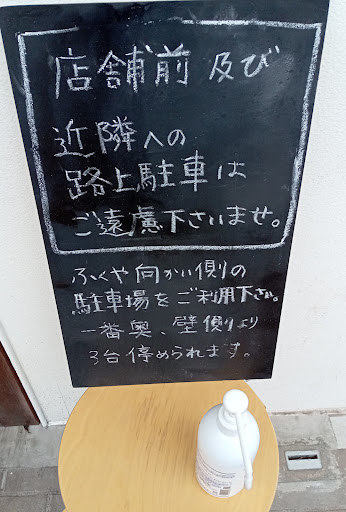 店舗前及び
近隣への
路上駐車は
ご遠慮下さいませ。
ふくや向かい側の
駐車場をご利用下さい。
一番奥、壁側より
3台停められます。